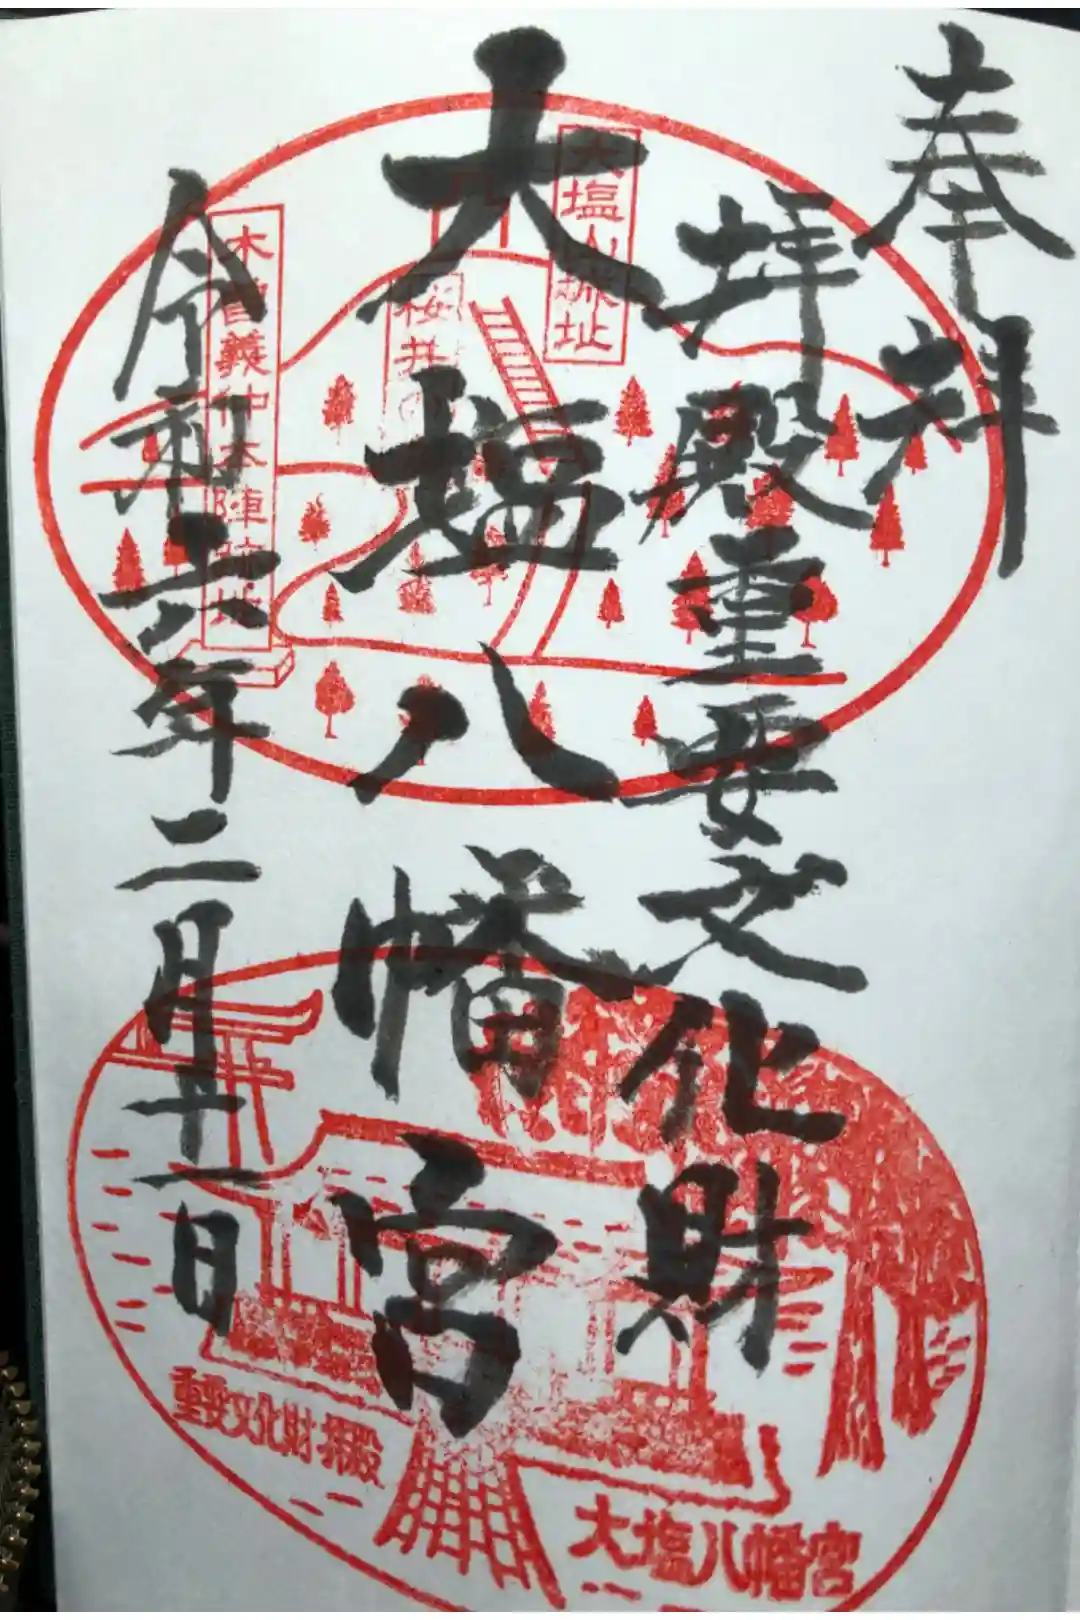 奉拝
拝殿重要文化財
大塩八幡宮
令和六年二月十一日
大塩山城址
桜井
木曽義仲本陣跡地
重要文化財拝殿
大塩八幡宮